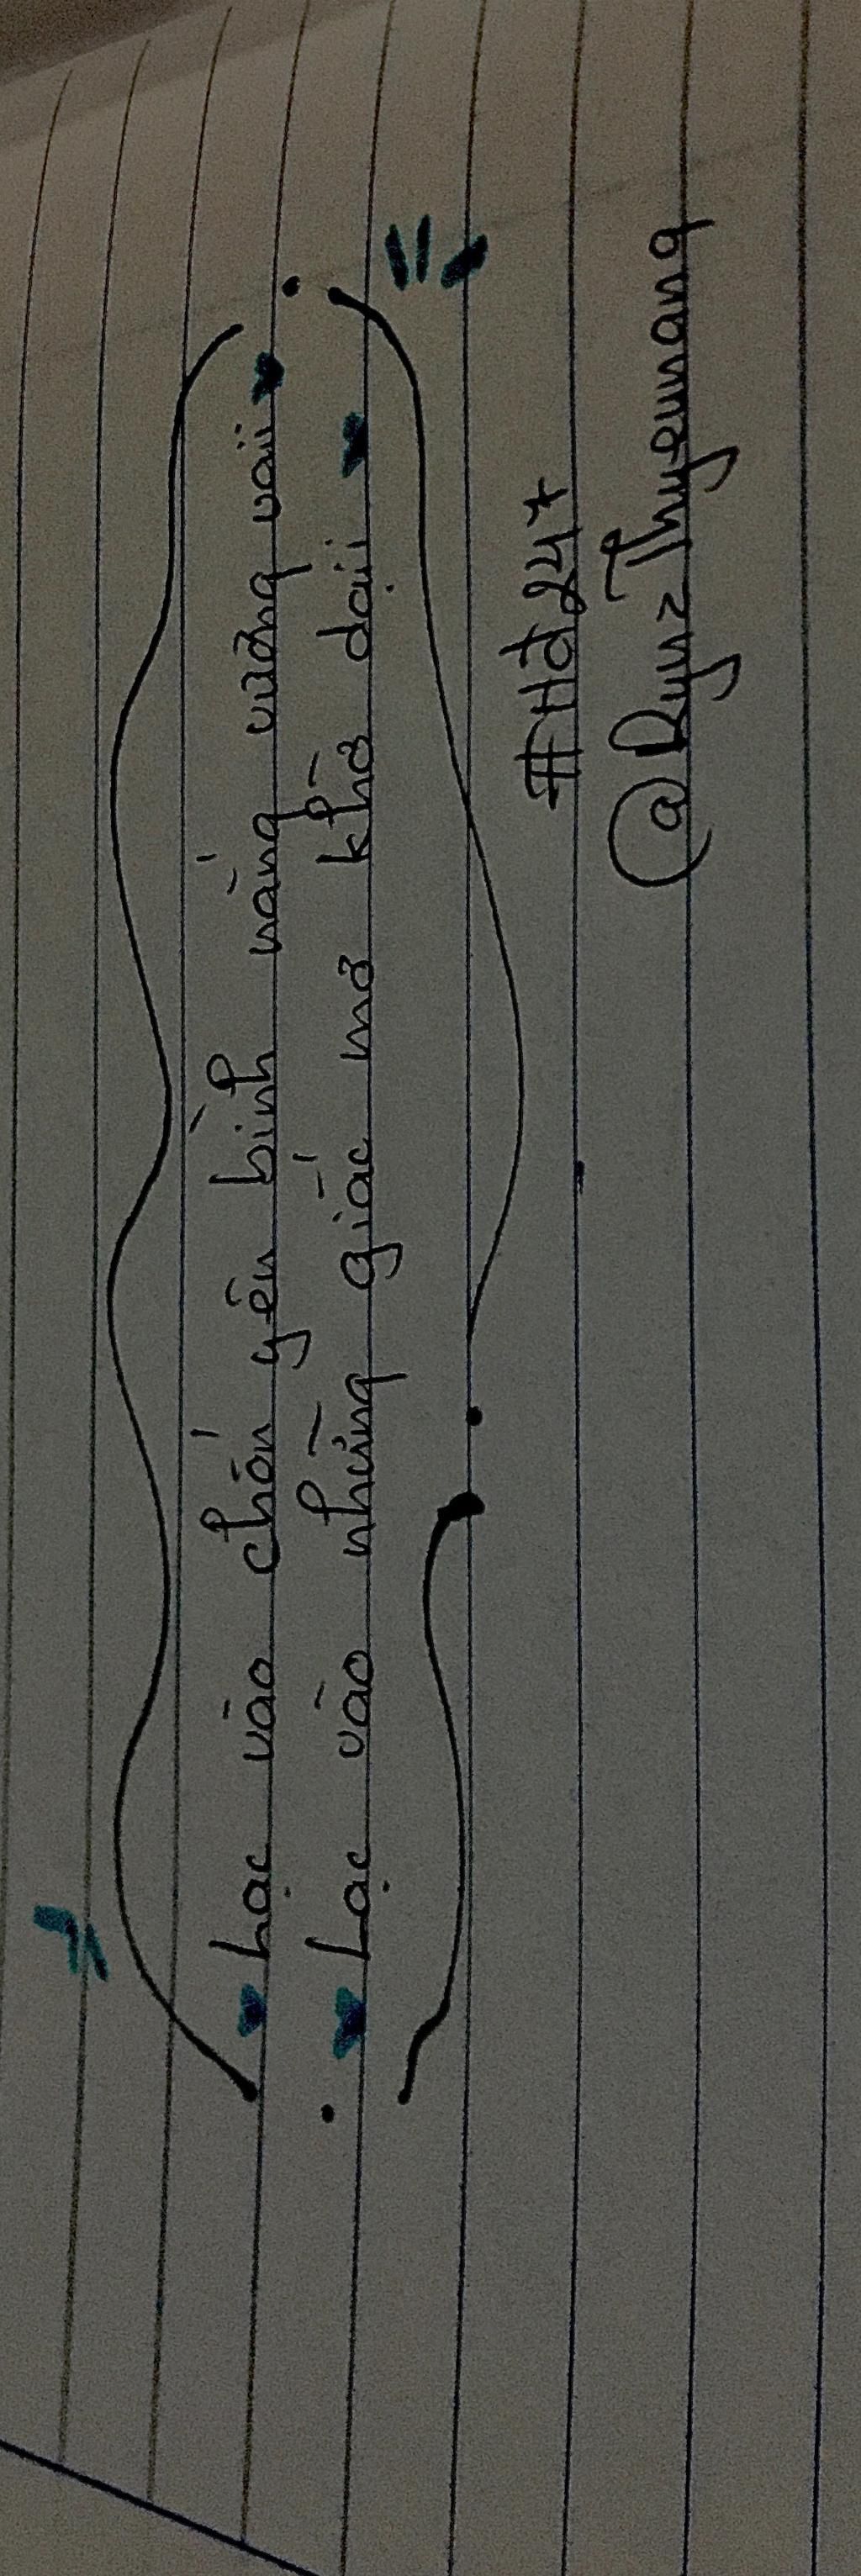 Lạc vào chốn yên bình nắng vương vãi
Lạc vào những giấc mơ khờ dại
@Ryuz Thyemang